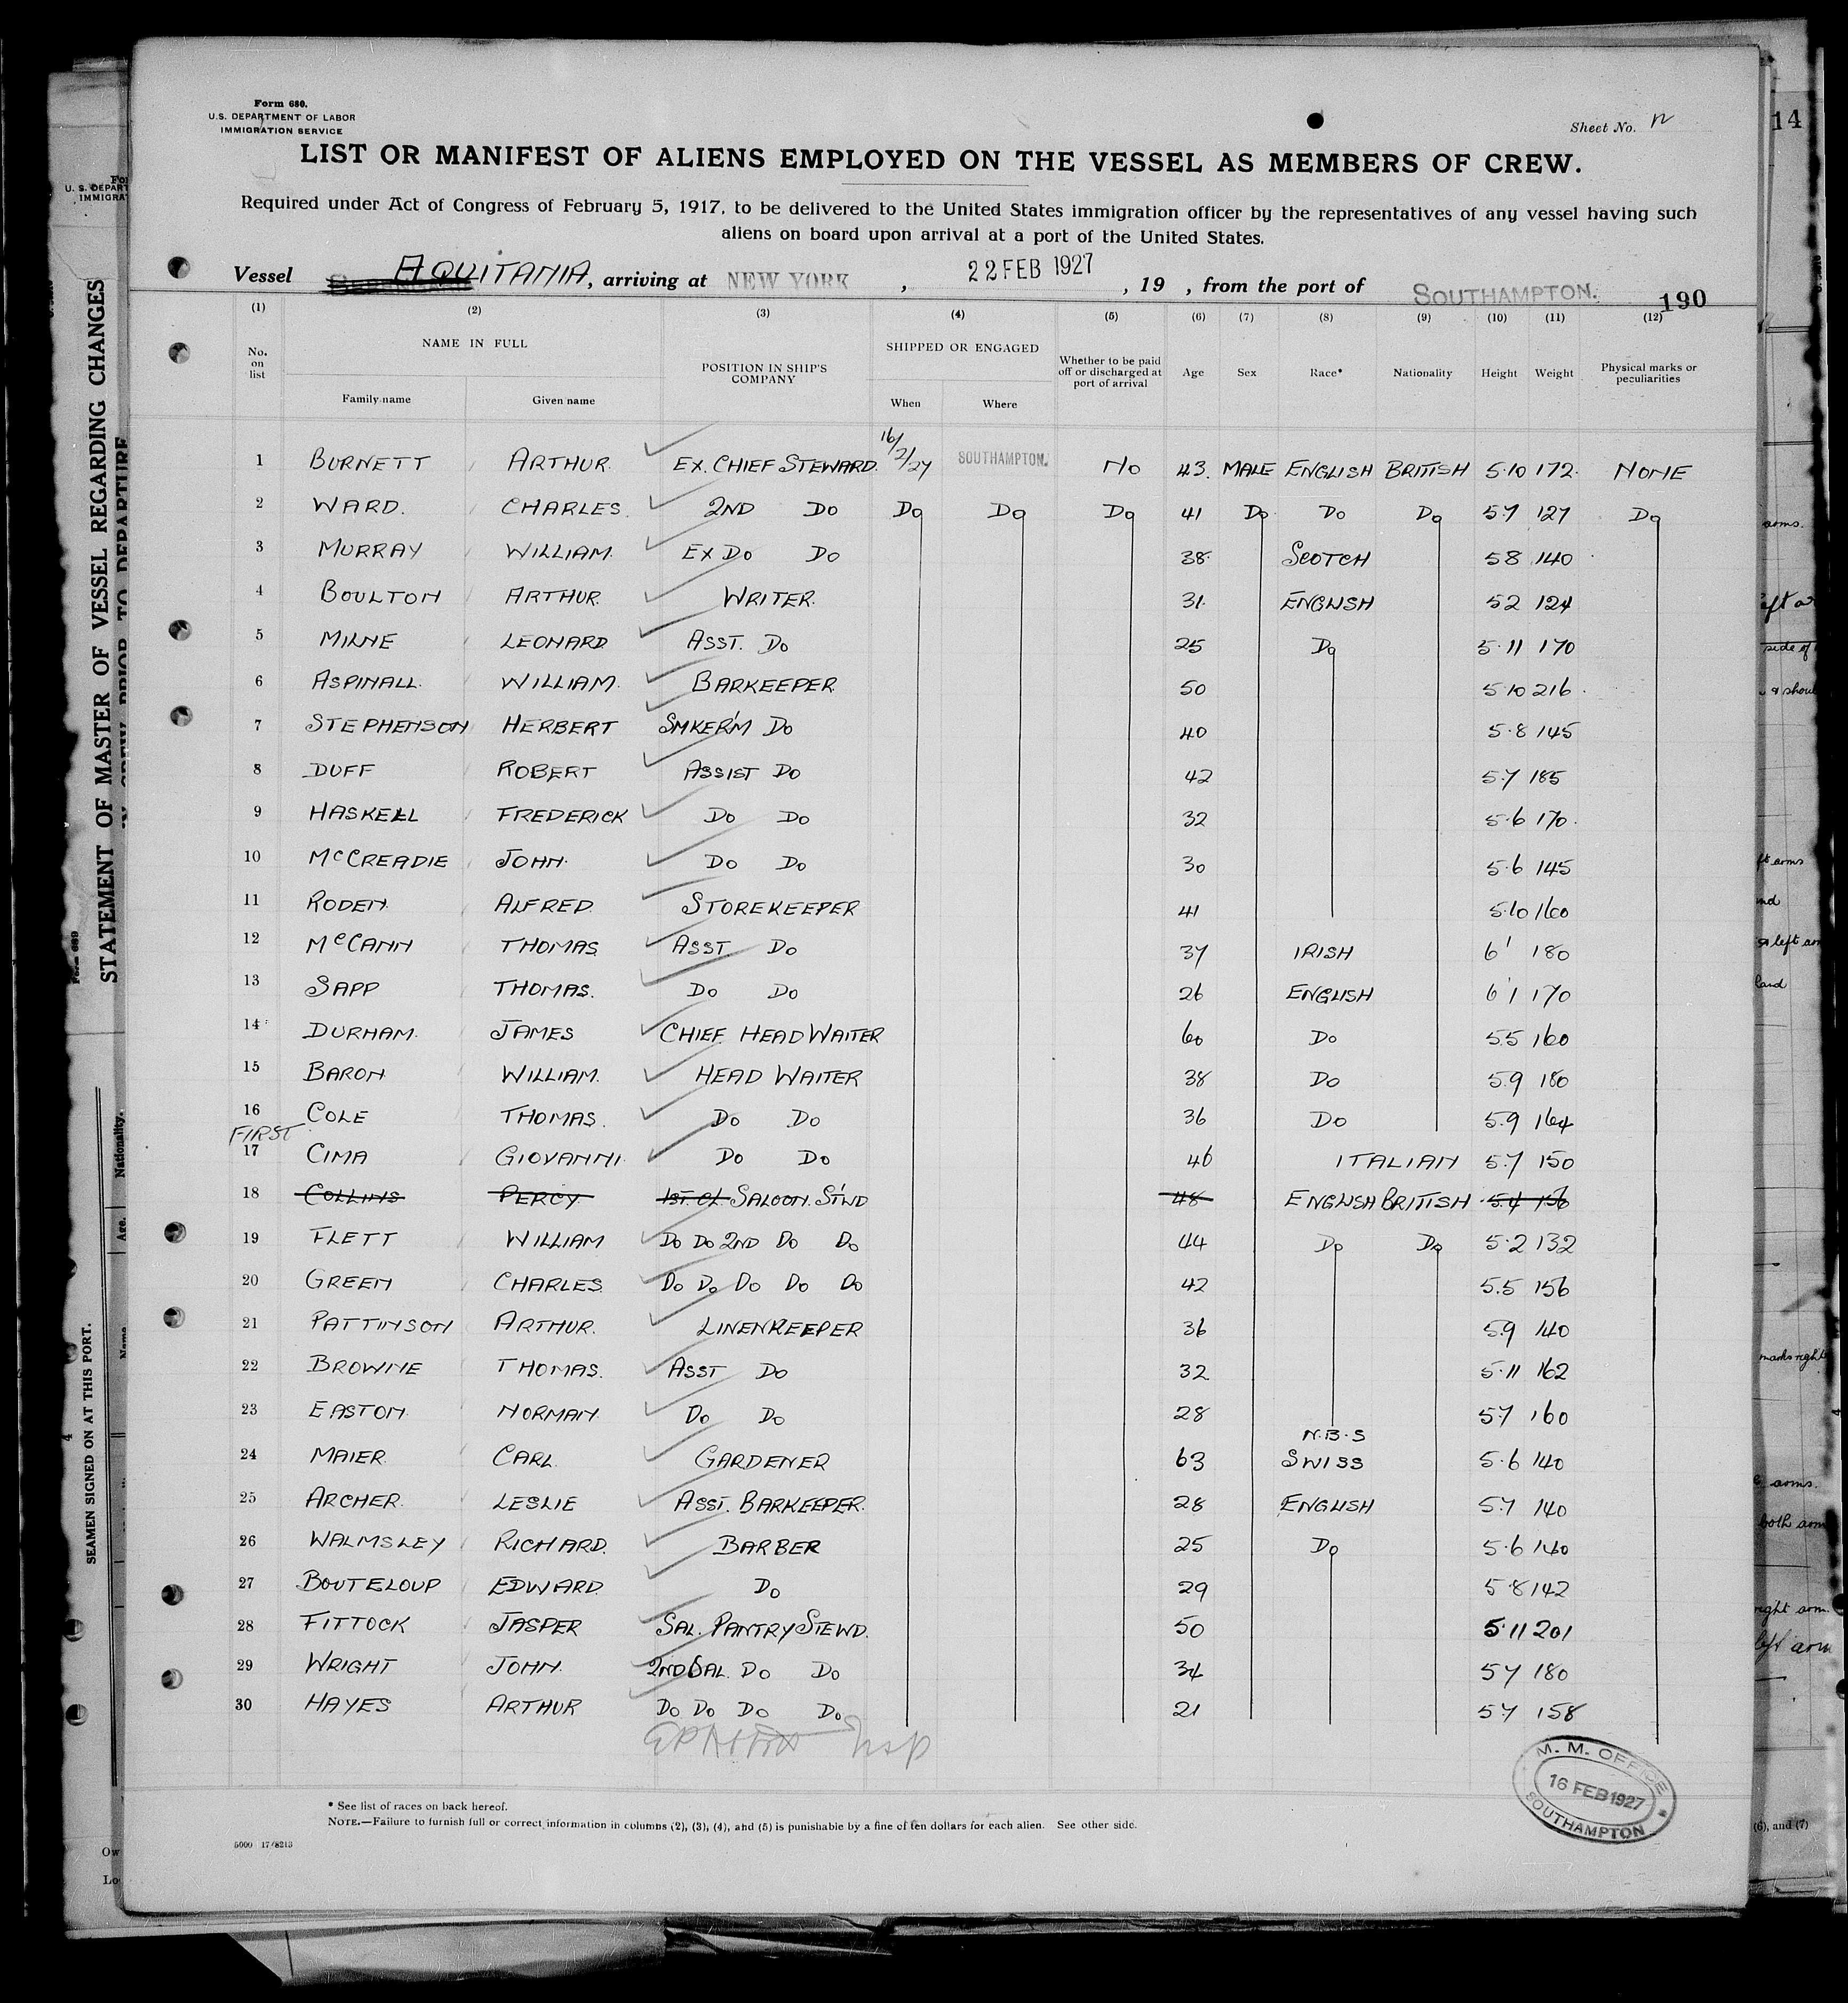 Form 680.
U.S. DEPARTMENT OF LABOR
IMMIGRATION SERVICE
Sheet No.
14
LIST OR MANIFEST OF ALIENS EMPLOYED ON THE VESSEL AS MEMBERS OF CREW.
Required under Act of Congress of February 5, 1917, to be delivered to the United States immigration officer by the representatives of any vessel having such
aliens on board upon arrival at a port of the United States.
Vessel AQUITANIA, arriving at NEW YORK, 22 FEB 1927, 19 , from the port of SOUTHAMPTON. 190
(1) (2) (3) (4) (5) (6) (7) (8) (9) (10) (11) (12)
No. on list NAME IN FULL Family name Given name POSITION IN SHIP'S COMPANY SHIPPED OR ENGAGED When Where Whether to be paid off or discharged at port of arrival Age Sex Race* Nationality Height Weight Physical marks or peculiarities
1 BURNETT ARTHUR. EX. CHIEF STEWARD. 16/2/27 SOUTHAMPTON. NO 43. MALE ENGLISH BRITISH 5.10 172. NONE
2 WARD. CHARLES. 2ND DO DO DO DO 41 DO DO DO 5.7 127 DO
3 MURRAY WILLIAM. EX DO DO 38. SCOTCH 5 8 140
4 BOULTON ARTHUR. WRITER. 31. ENGLISH 5 2 124
5 MILNE LEONARD ASST. DO 25 DO 5.11 170
6 ASPINALL. WILLIAM. BARKEEPER 50 5 10 216.
7 STEPHENSON HERBERT SMKER'M DO 40 5.8 145
8 DUFF ROBERT ASSIST DO 42 5.7 185
9 HASKELL FREDERICK DO DO 32 5.6 170.
10 McCREADIE JOHN. DO DO 30 5.6 145
11 RODEN. ALFRED. STOREKEEPER 41 5.10 160
12 McCANN THOMAS. ASST DO 37 IRISH 6' 180
13 SAPP THOMAS. DO DO 26 ENGLISH 6'1 170
14 DURHAM. JAMES CHIEF HEAD WAITER 60 DO 5.5 160
15 BARON WILLIAM. HEAD WAITER 38 DO 5.9 180
16 COLE THOMAS. DO DO 36 DO 5.9 164
FIRST
17 CIMA GIOVANNI. DO DO 46 ITALIAN 5.7 150
18 COLLINS PERCY 1ST. CL. SALOON. ST'WD 48 ENGLISH BRITISH 5.4 156
19 FLETT WILLIAM DO DO 2ND DO DO 44 DO DO 5.2 132
20 GREEN CHARLES. DO DO DO DO DO 42 5.5 156
21 PATTINSON ARTHUR. LINENKEEPER 36 5.9 140
22 BROWNE THOMAS. ASST DO 32 5.11 162
23 EASTON. NORMAN. DO DO 28 5.7 160
N.B.S
24 MAIER CARL. GARDENER 63 SWISS 5.6 140
25 ARCHER. LESLIE ASST. BARKEEPER. 28 ENGLISH 5.7 140
26 WALMSLEY RICHARD. BARBER 25 DO 5.6 140
27 BOUTELOUP EDWARD. DO 29 5 8 142
28 FITTOCK JASPER SAL. PANTRY STEWD. 50 5.11 201
29 WRIGHT JOHN. 2ND SAL. DO DO 34 5 7 180
30 HAYES ARTHUR DO DO DO DO 21 5.7 158
M. M. OFFICE
16 FEB 1927
SOUTHAMPTON
* See list of races on back hereof.
NOTE.—Failure to furnish full or correct information in columns (2), (3), (4), and (5) is punishable by a fine of ten dollars for each alien. See other side.
5000 17/8213
STATEMENT OF MASTER OF VESSEL REGARDING CHANGES
Form 689
SEAMEN SIGNED ON AT THIS PORT.
Nationality.
Age.
Name
(6), and (7)